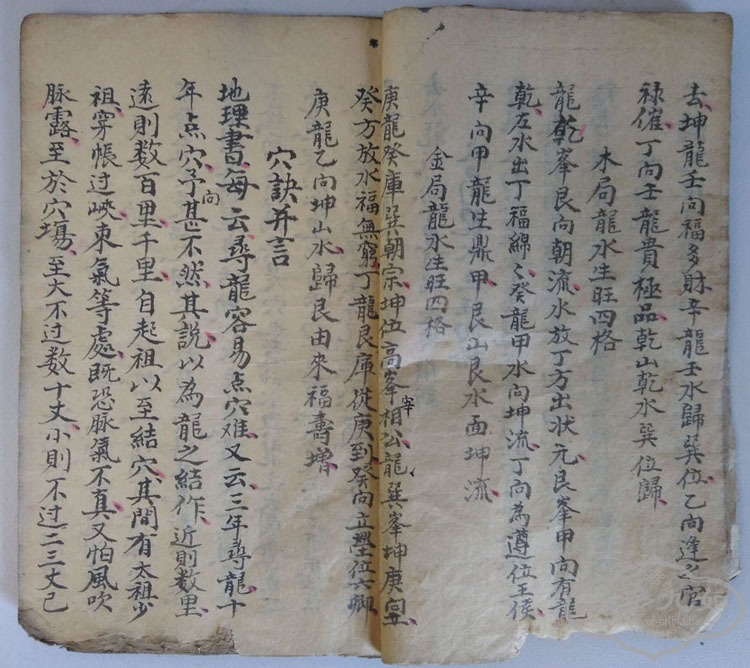 去坤龍壬向福多財辛龍壬水歸巽位乙向逢之官
祿催丁向壬龍貴極品乾山乾水巽位歸
木局龍水生旺四格
龍乾峯艮向朝流水放丁方出狀元艮峯甲向有龍
乾左水出丁福綿〻癸龍甲水向坤流丁向為遵位王侯
辛向甲龍生鼎甲艮山艮水面坤流
金局龍水生旺四格
庚龍癸庫巽朝宗坤位高峯宰相公龍巽峯坤庚
癸方放水福無窮丁龍艮庫從庚到癸向立塋位六卿
庚龍乙向坤山水歸艮由來福壽增
穴訣并言
地理書每云尋龍容易点穴难又云三年尋龍十
年点穴予向甚不然其說以為龍之結作近則数里
遠則数百里千里自起祖以至結穴其間有太祖少
祖穿帳过峽束氣等處既恐脉氣不真又怕風吹
脉露至於穴塲至大不过数十丈小則不过二三丈已